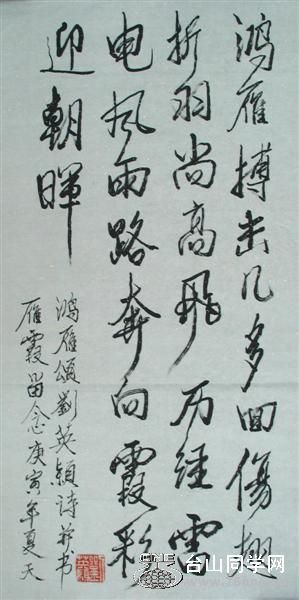 鸿雁搏击几多回伤翅
折羽尚高飛历経雷
电风雨路奔向霞彩
迎朝暉
鸿雁頌劉英穎诗并书
雁霞留念庚寅年夏天
台山同学网